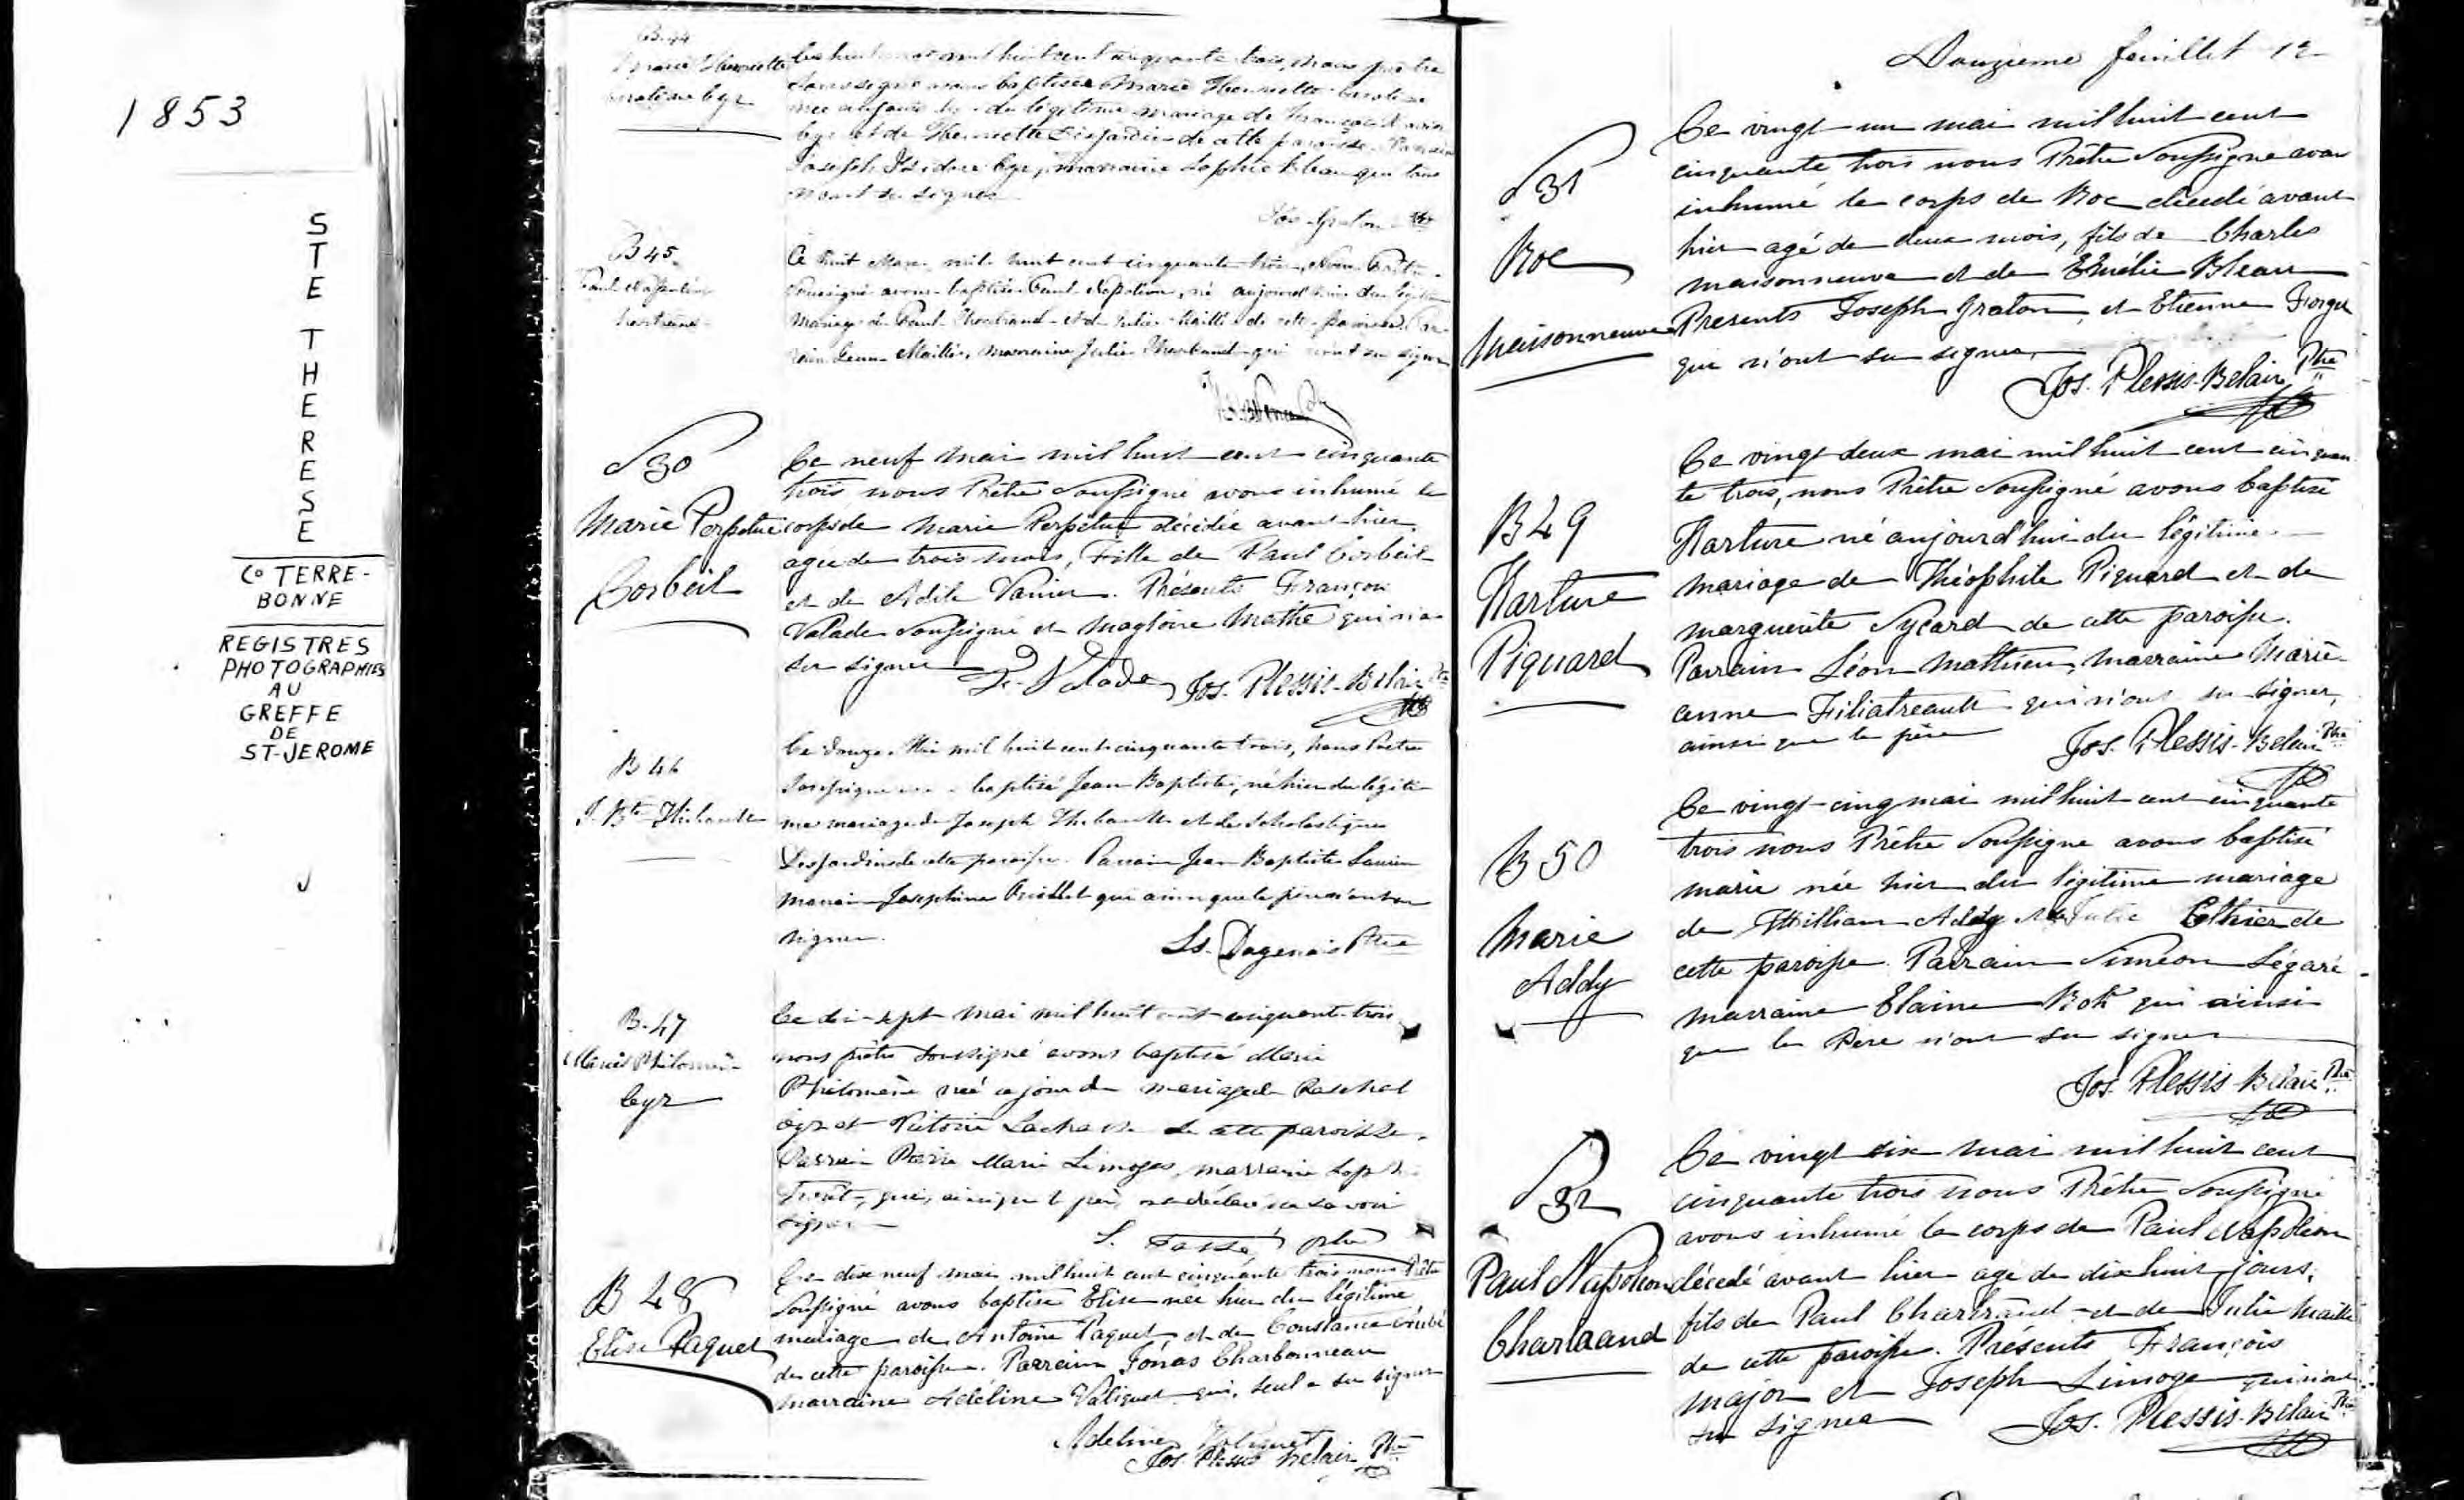 1853
STE THERESE
Co TERRE-
BONNE
REGISTRES
PHOTOGRAPHIES
AU
GREFFE
DE
ST-JEROME
B. 44
Marie Henriette
Cyr
huit cent cinquante trois, nous prêtre
soussigné avons baptisé Marie Henriette
née du légitime mariage de
Cyr et de Henriette Desjardins de cette paroisse.
Joseph Isidore Cyr, marraine Sophie Bleau qui
signer
Jos. Graton Ptre
B 45
Paul Napoléon
Ce huit mil huit cent cinquante trois, Nous Prêtre
soussigné avons baptisé Paul Napoléon, né aujourd'hui du légitime
mariage de Paul Chartrand et de Julie Maillé de cette paroisse. Par-
rain Maillé, marraine Julie Chartrand qui n'ont su signer
S 30
Marie Perpetue
Corbeil
Ce neuf mai mil huit cent cinquante
trois nous Prêtre Soussigné avons inhumé le
corps de Marie Perpetue décédée avant hier,
agée de trois mois, Fille de Paul Corbeil
et de Adile Vanier. Présents François
Valade Soussigné et Magloire Mathe qui n'a
su signer
F. Valade Jos. Plessis-Belair Ptre
B 46
J. Bte Thibault
Ce douze Mai mil huit cent cinquante trois, Nous Prêtre
soussigné baptisé Jean Baptiste, né hier du légiti-
me mariage de Joseph Thibault et de Scholastique
Desjardins de cette paroisse. Parrain Jean Baptiste
Josephine qui ainsi que le père n'ont su
signer.
Ls. Dagenais Ptre
B. 47
Marie Philomène
Cyr
Ce dix-sept mai mil huit cent cinquante-trois
nous prêtre soussigné avons baptisé Marie
Philomène née ce jour du mariage de Paschal
Cyr et Victoire de cette paroisse.
Parrain Pierre Marie Limoges, marraine
qui, ainsi que le père, savoir
signer
S. Tassé ptre
B 48
Elise Paquet
Ce dix neuf mai mil huit cent cinquante trois nous Prêtre
Soussigné avons baptisé Elise née hier du légitime
mariage de Antoine Paquet et de Constance
de cette paroisse. Parrain Jonas Charbonneau
marraine Adéline Valiquet qui, seul a su signer
Adeline Valiquet
Jos. Plessis Belair Ptre
Douzieme feuillet 12
S 31
Roc
Maisonneuve
Ce vingt-un mai mil huit cent
cinquante trois nous Prêtre Soussigné avons
inhumé le corps de Roc décédé avant
hier agé de deux mois, fils de Charles
maisonneuve et de Emélie Bleau
Presents Joseph Graton et Etienne Forget
qui n'ont su signer
Jos. Plessis-Belair Ptre
B 49
Narture
Piquard
Ce vingt deux mai mil huit cent cinquan
te trois, nous Prêtre Soussigné avons baptisé
Narture né aujourd'hui du légitime
mariage de Théophile Piquard et de
marguerite Sycard de cette paroisse.
Parrain Léon Mathieu, marraine Marie-
anne Filiatreault qui n'ont su signer,
ainsi que le père
Jos. Plessis-Belair Ptre
B 50
Marie
Addy
Ce vingt-cinq mai mil huit cent cinquante
trois nous Prêtre Soussigné avons baptisé
marie née hier du légitime mariage
de William Addy et de Julie Ethier de
cette paroisse. Parrain Siméon Légaré
marraine Elaine qui ainsi
que le Père n'ont su signer
Jos. Plessis-Belair Ptre
S 32
Paul Napoléon
Chartrand
Ce vingt six mai mil huit cent
cinquante trois nous Prêtre Soussigné
avons inhumé le corps de Paul Napoléon
décédé avant hier agé de dix huit jours,
fils de Paul Chartrand et de Julie Maillé
de cette paroisse. Présents François
major et Joseph Limoge qui n'ont
su signer
Jos. Plessis-Belair Ptre